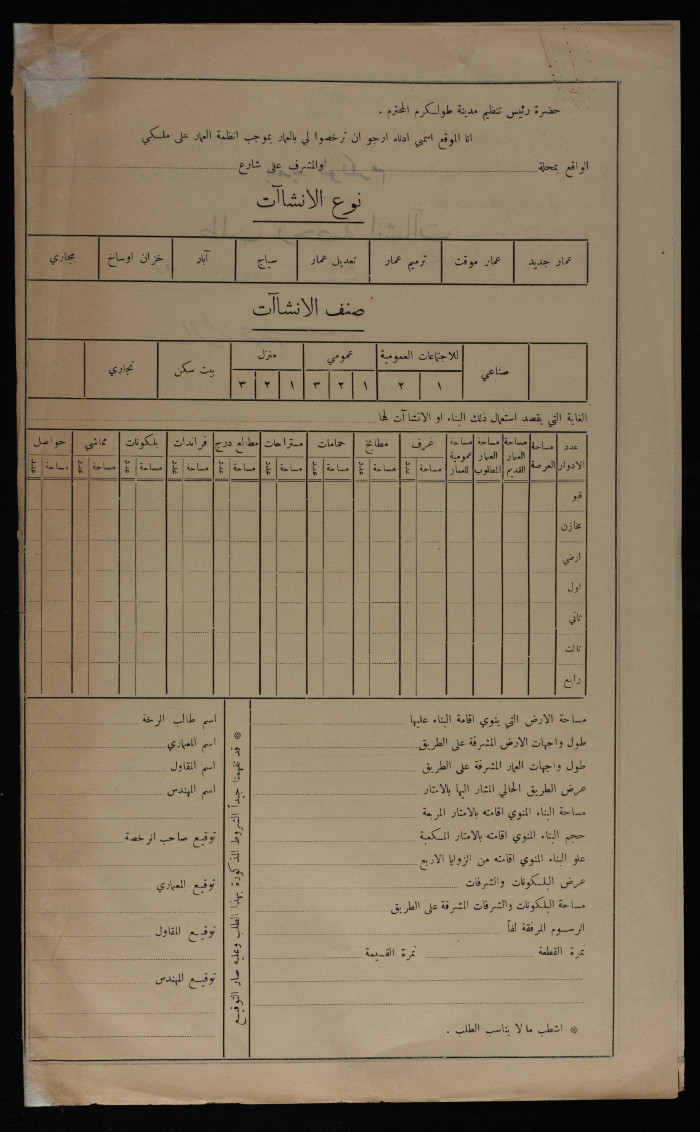 حضرة رئيس تنظيم مدينة طولكرم المحترم .
انا الموقع اسمي ادناه ارجو ان ترخصوا لي بالعمار بموجب انظمة العمار على ملكي
الواقع بمحلة والمشرف على شارع
نوع الانشاآت
عمار جديد عمار موقت ترميم عمار تعديل عمار سياج آبار خزان اوساخ مجاري
صنف الانشاآت
صناعي للاجتماعات العمومية عمومي منزل بيت سكن تجاري
١ ٢ ١ ٢ ٣ ١ ٢ ٣
الغاية التي يقصد استعمال ذلك البناء او الانشاآت لها
عدد الادوار مساحة العرصة مساحة العمار القديم مساحة العمار المطلوب مساحة عمومية للعمار غرف مطابخ حمامات مستراحات مطالع درج فراندات بلكونات مماشي حواصل
مساحة عدد مساحة عدد مساحة عدد مساحة عدد مساحة عدد مساحة عدد مساحة عدد مساحة عدد مساحة عدد
قبو
مخازن
ارضي
اول
ثاني
ثالث
رابع
مساحة الارض التي ينوي اقامة البناء عليها
طول واجهات الارض المشرفة على الطريق
طول واجهات العمار المشرفة على الطريق
عرض الطريق الحالي المشار اليها بالامتار
مساحة البناء المنوي اقامته بالامتار المربعة
حجم البناء المنوي اقامته بالامتار المكعبة
علو البناء المنوي اقامته من الزوايا الاربع
عرض البلكونات والشرفات
مساحة البلكونات والشرفات المشرفة على الطريق
الرسوم المرفقة لفاً
نمرة القطعة نمرة القسيمة
* اشطب ما لا يناسب الطلب .
* قد تفهمنا جيداً الشروط المذكورة بهذا الطلب وعليه صار التوقيع
اسم طالب الرخة
اسم المعماري
اسم المقاول
اسم المهندس
توقيع صاحب الرخصة
توقيع المعماري
توقيع المقاول
توقيع المهندس